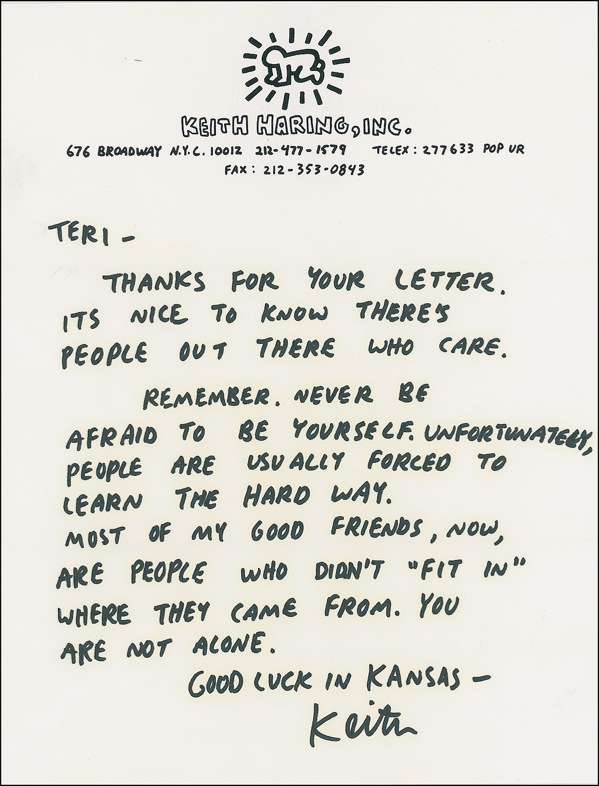 KEITH HARING, INC.
676 BROADWAY N.Y.C. 10012 212-477-1579 TELEX: 277633 POP UR
FAX: 212-353-0843
TERI -
THANKS FOR YOUR LETTER.
ITS NICE TO KNOW THERE'S
PEOPLE OUT THERE WHO CARE.
REMEMBER. NEVER BE
AFRAID TO BE YOURSELF. UNFORTUNATELY,
PEOPLE ARE USUALLY FORCED TO
LEARN THE HARD WAY.
MOST OF MY GOOD FRIENDS, NOW,
ARE PEOPLE WHO DIDN'T "FIT IN"
WHERE THEY CAME FROM. YOU
ARE NOT ALONE.
GOOD LUCK IN KANSAS -
Keith